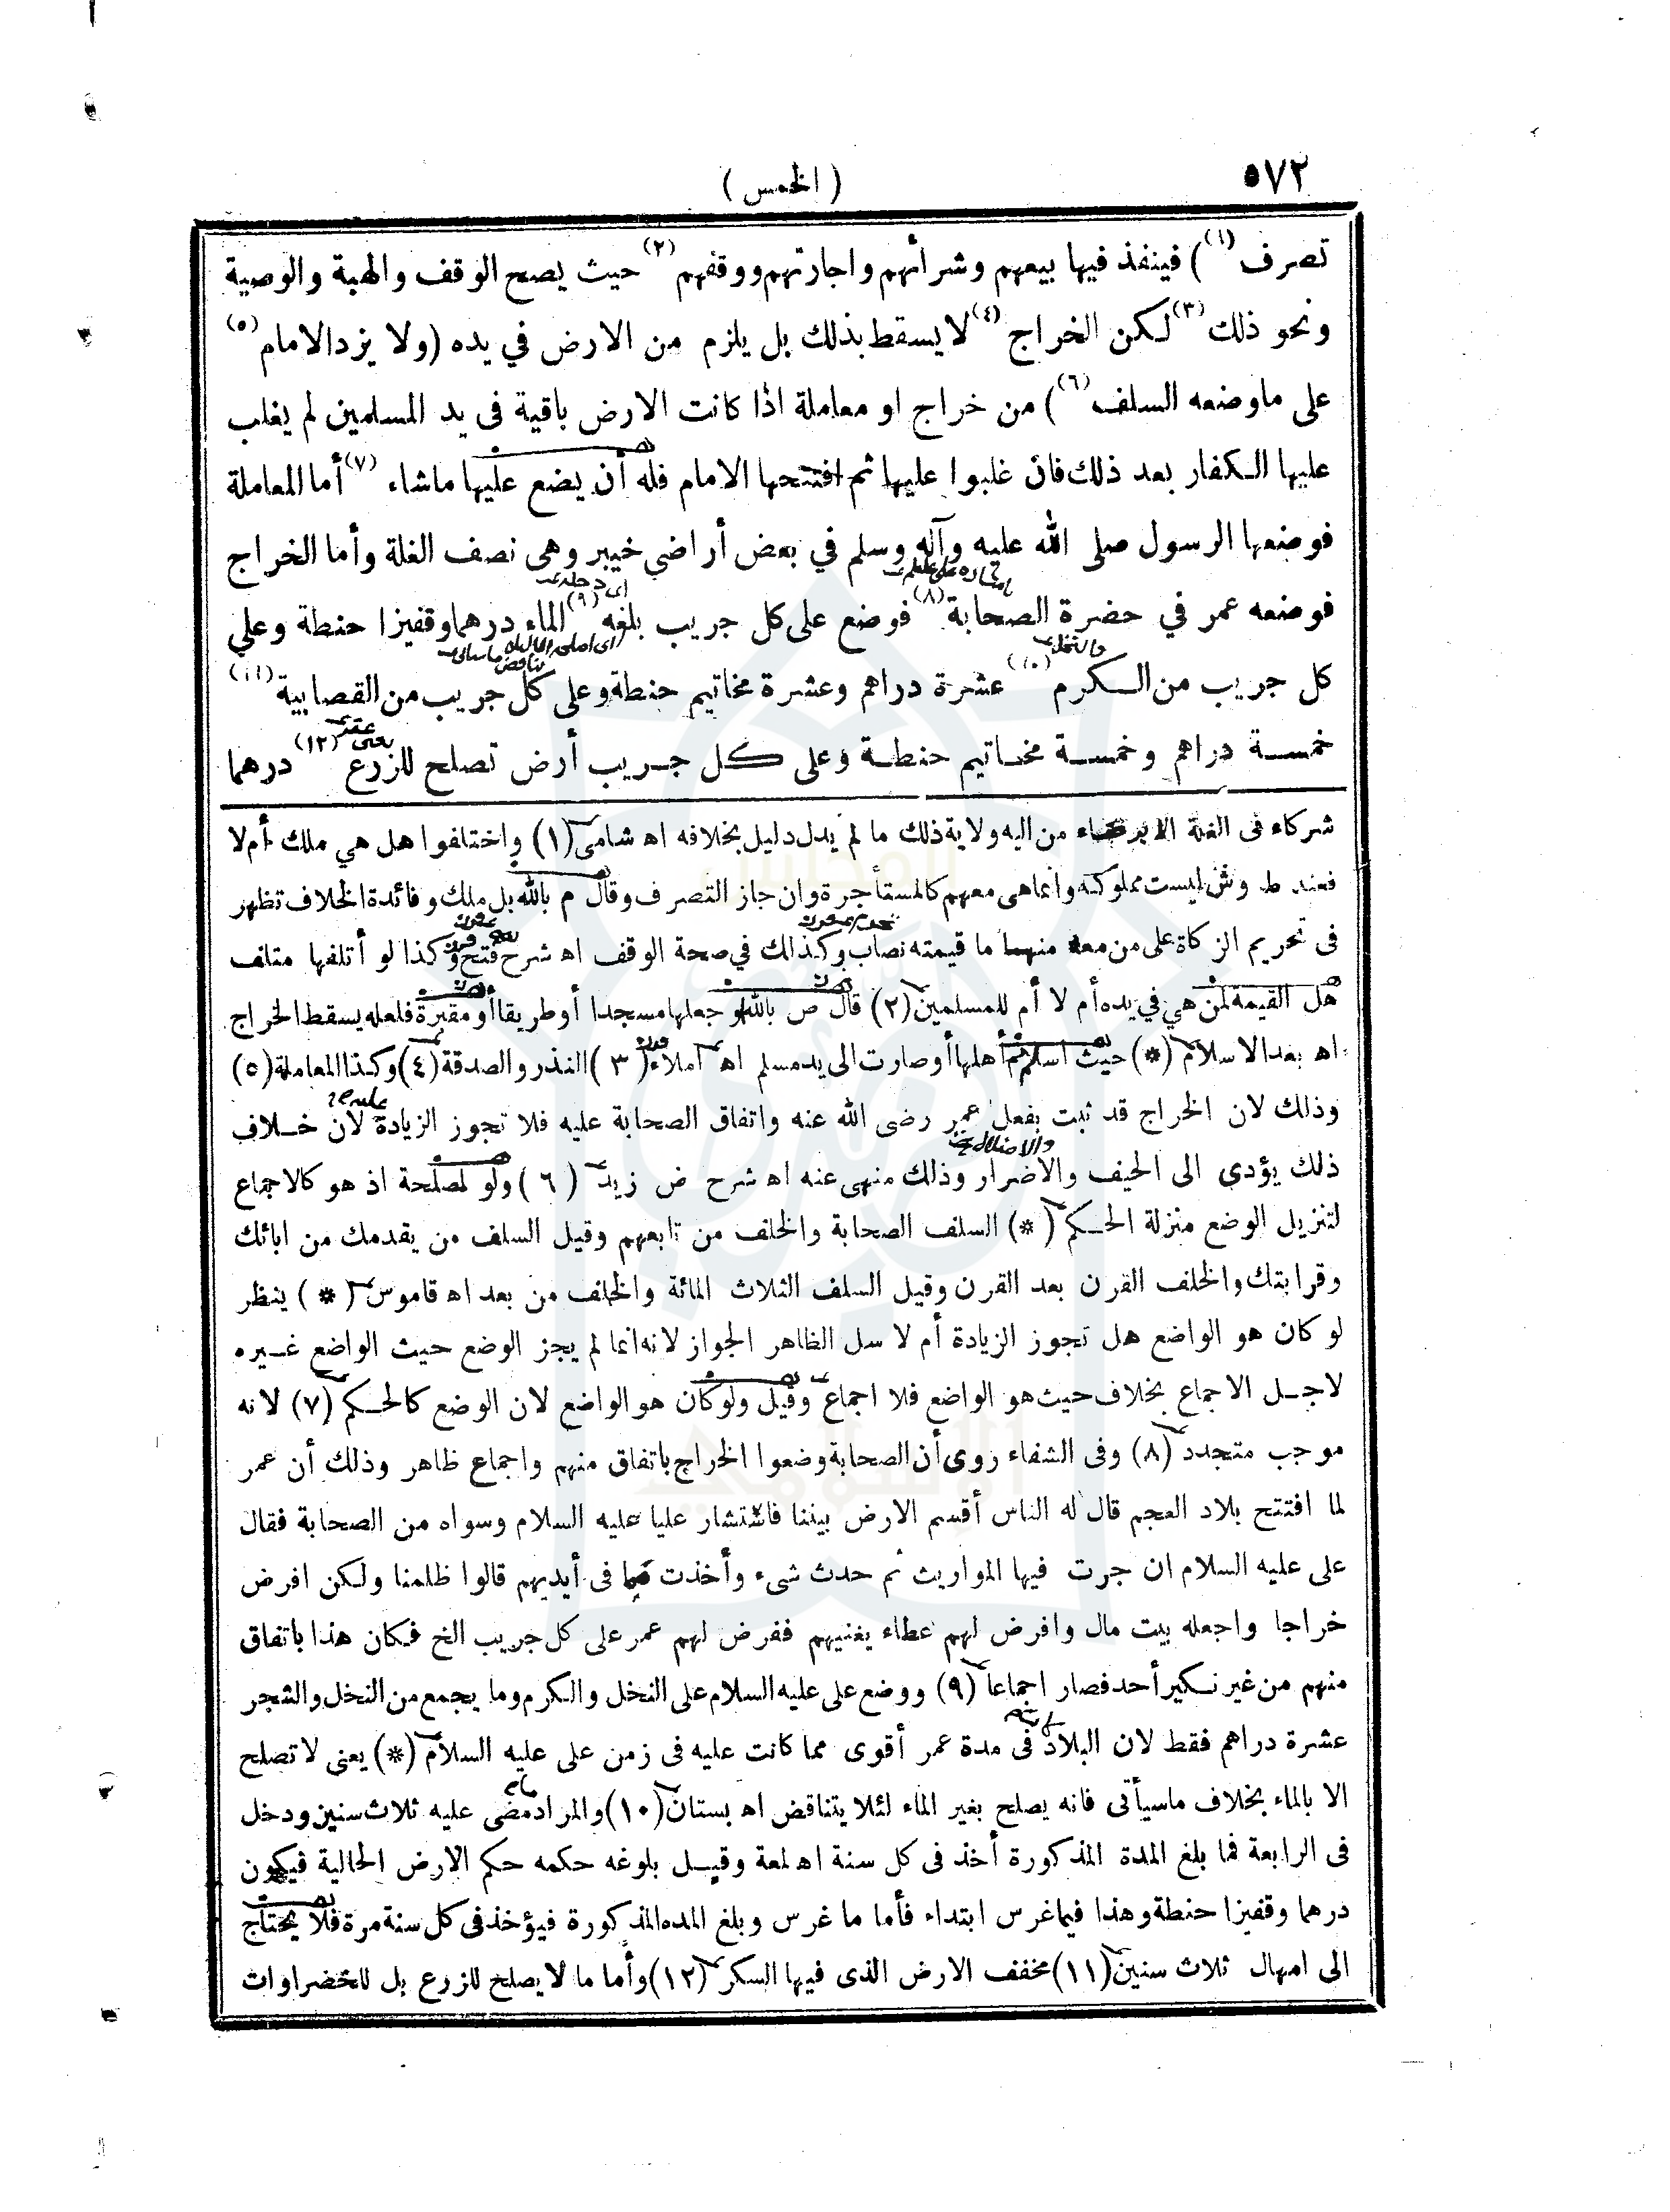 ٥٧٢
( الخمس )
تصرف (١) ) فينفذ فيها بيعهم وشرأئهم واجارتهم ووقفهم (٢) حيث يصح الوقف والهبة والوصية
ونحو ذلك (٣) لكن الخراج (٤) لا يسقط بذلك بل يلزم من الارض في يده (ولا يزد الامام (٥)
على ماوضعه السلف (٦) ) من خراج او معاملة اذا كانت الارض باقية فى يد المسلمين لم يغلب
عليها الكفار بعد ذلك فان غلبوا عليها ثم افتتحها الامام فله أن يضع عليها ماشاء (٧) أما المعاملة
فوضعها الرسول صلى الله عليه وآله وسلم في بعض أراضي خيبر وهى نصف الغلة وأما الخراج
فوضعه عمر في حضرة الصحابة (٨) فوضع على كل جريب بلغه (٩) الماء درهما وقفيزا حنطة وعلى
كل جريب من الكرم (١٠) عشرة دراهم وعشرة مخاتيم حنطة وعلى كل جريب من القصابية (١١)
خمسة دراهم وخمسة مخاتيم حنطة وعلى كل جريب أرض تصلح للزرع (١٢) درهما
شركاء فى الغلة الا برضاء من اليه ولاية ذلك ما لم يدل دليل بخلافه اه شامى (١) واختلفوا هل هي ملك أم لا
فعند ط وش ليست مملوكة وانما هى معهم كالمستأجرة وان جاز التصرف وقال م بالله بل ملك وفائدة الخلاف تظهر
فى تحريم الزكاة على من معه منهما ما قيمته نصاب وكذلك في صحة الوقف اه شرح فتح وكذا لو أتلفها متلف
هل القيمة لمن هي في يده أم لا أم للمسلمين (٢) قال ص بالله لو جعلها مسجدا أو طريقا أو مقبرة فلعله يسقط الخراج
اه بعد الاسلام (*) حيث اسلم أهلها أو صارت الى يد مسلم اه املاء (٣) النذر والصدقة (٤) وكذا المعاملة (٥)
وذلك لان الخراج قد ثبت بفعل عمر رضى الله عنه واتفاق الصحابة عليه فلا تجوز الزيادة لان خلاف
ذلك يؤدى الى الحيف والاضرار وذلك منهى عنه اه شرح ض زيد (٦) ولو لمصلحة اذ هو كالاجماع
لتنزيل الوضع منزلة الحكم (*) السلف الصحابة والخلف من تابعهم وقيل السلف من يقدمك من ابائك
وقرابتك والخلف القرن بعد القرن وقيل السلف الثلاث المائة والخلف من بعد اه قاموس (*) ينظر
لو كان هو الواضع هل تجوز الزيادة أم لا سل الظاهر الجواز لانه انما لم يجز الوضع حيث الواضع غيره
لاجل الاجماع بخلاف حيث هو الواضع فلا اجماع وقيل ولو كان هو الواضع لان الوضع كالحكم (٧) لانه
موجب متجدد (٨) وفى الشفاء روى أن الصحابة وضعوا الخراج باتفاق منهم واجماع ظاهر وذلك أن عمر
لما افتتح بلاد العجم قال له الناس أقسم الارض بيننا فاستشار عليا عليه السلام وسواه من الصحابة فقال
على عليه السلام ان جرت فيها المواريث ثم حدث شىء وأخذت مما فى أيديهم قالوا ظلمنا ولكن افرض
خراجا واجعله بيت مال وافرض لهم عطاء يغنيهم ففرض لهم عمر على كل جريب الخ فكان هذا باتفاق
منهم من غير نكير أحد فصار اجماعا (٩) ووضع على عليه السلام على النخل والكرم وما يجمع من النخل والشجر
عشرة دراهم فقط لان البلاد فى مدة عمر أقوى مما كانت عليه فى زمن على عليه السلام (*) يعنى لا تصلح
الا بالماء بخلاف ماسيأتى فانه يصلح بغير الماء لئلا يتناقض اه بستان (١٠) والمراد مضى عليه ثلاث سنين ودخل
فى الرابعة فما بلغ المدة المذكورة أخذ فى كل سنة اه لمعة وقبل بلوغه حكمه حكم الارض الخالية فيكون
درهما وقفيزا حنطة وهذا فيما غرس ابتداء فأما ما غرس وبلغ المده المذكورة فيؤخذ فى كل سنة مرة فلا يحتاج
الى امهال ثلاث سنين (١١) مخفف الارض الذى فيها السكر (١٢) وأما ما لا يصلح للزرع بل للخضراوات